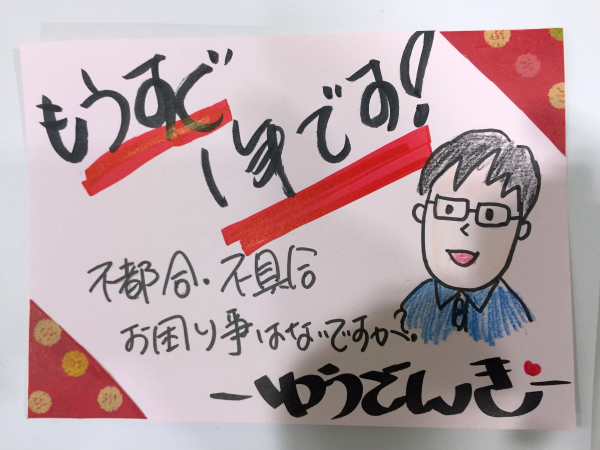 もうすぐ
1年です!
不都合・不具合
お困り事はないですか?
ーゆうでんきー